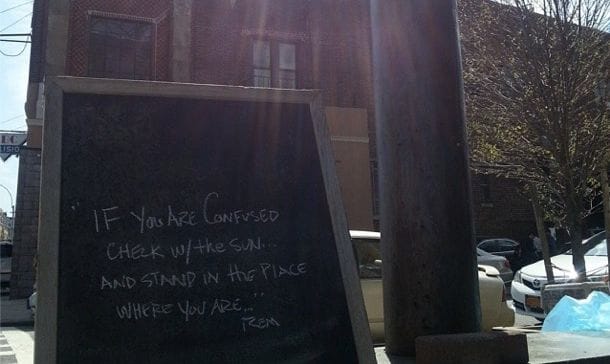 "IF YOU ARE CONFUSED
CHECK W/THE SUN...
AND STAND IN THE PLACE
WHERE YOU ARE..."
REM